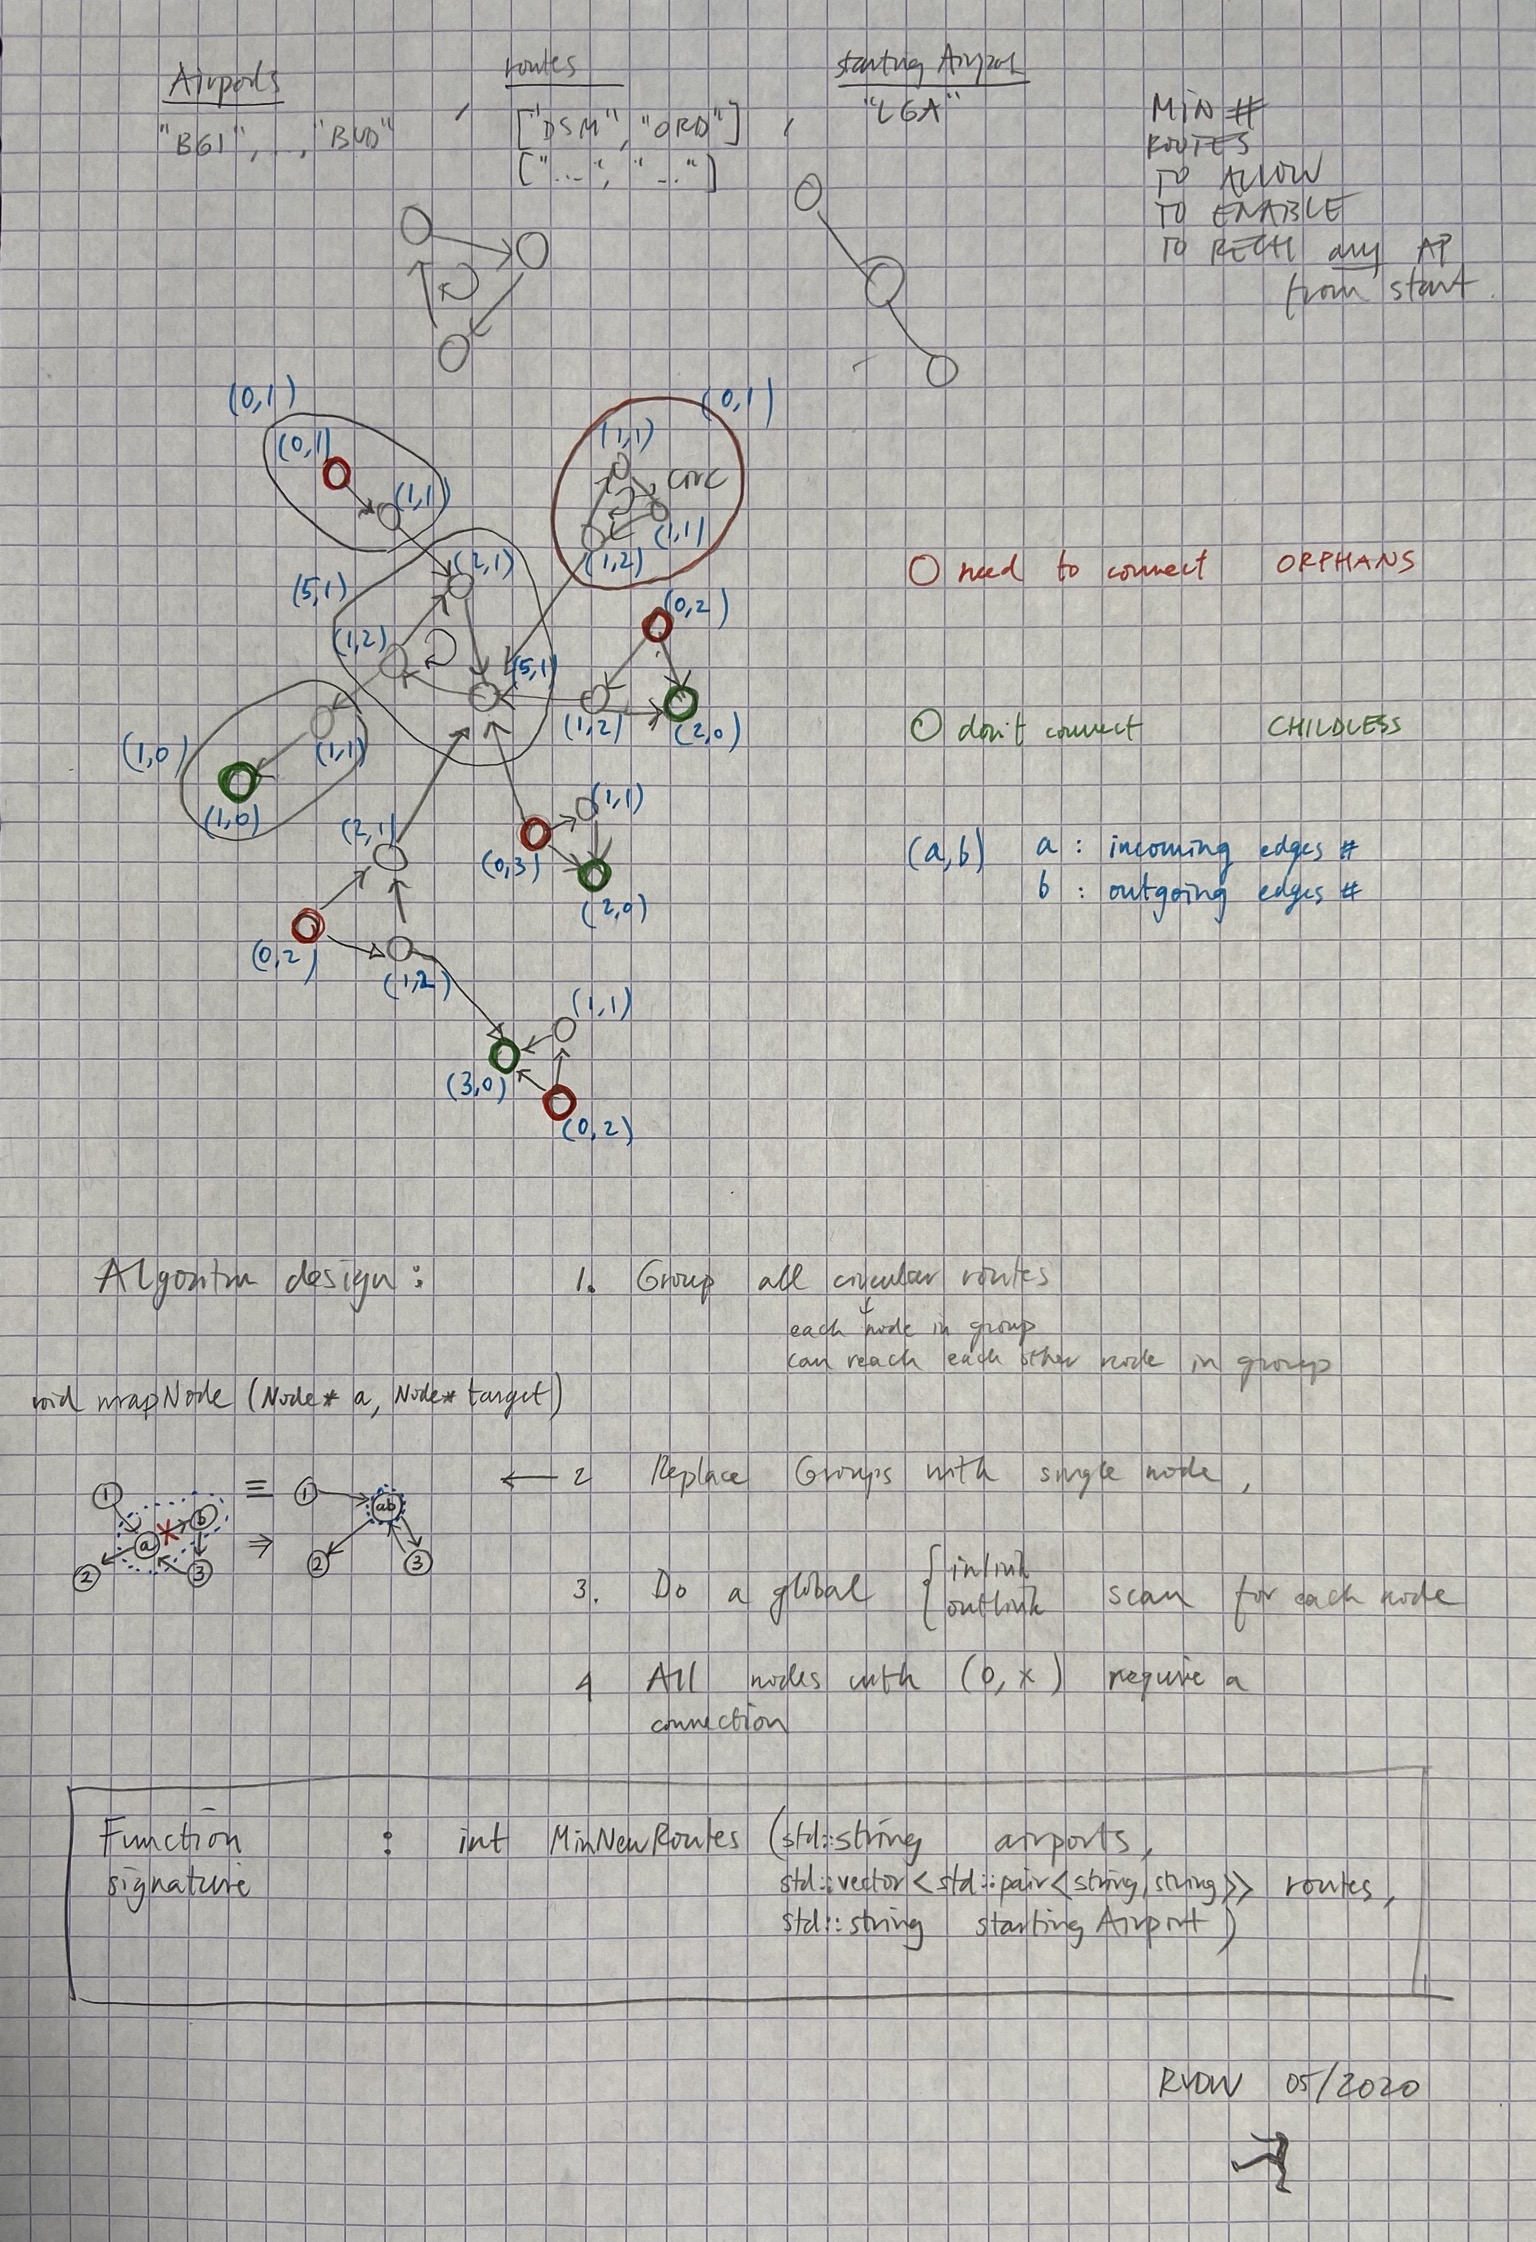 Airports routes starting Airport
"BGI", .., "BUD" , ["DSM", "ORD"] , "LGA"
["...", "..."]
MIN #
ROUTES
TO ALLOW
TO ENABLE
TO RECH any AP
from start.
(0,1)
(0,1)
(1,1)
(0,1)
(1,1)
circ
(1,1)
(1,2)
(2,1)
(5,1)
(1,2)
(5,1)
(0,2)
(1,2)
(2,0)
(1,0)
(1,1)
(1,0)
(2,1)
(1,1)
(0,3)
(2,0)
(0,2)
(1,2)
(1,1)
(3,0)
(0,2)
need to connect ORPHANS
don't connect CHILDLESS
(a,b) a : incoming edges #
b : outgoing edges #
Algoritm design : 1. Group all circular routes
each node in group
can reach each other node in group
void wrapNode (Node* a, Node* target)
1 a b 2 3 ≡ ⇒ 1 ab 2 3
← 2 Replace Groups with single node,
3. Do a global { inlink
outlink scan for each node
4 All nodes with (0, x) require a
connection
Function : int MinNewRoutes (std::string airports,
signature std::vector<std::pair<string, string>> routes,
std::string starting Airport)
RVDW 05/2020